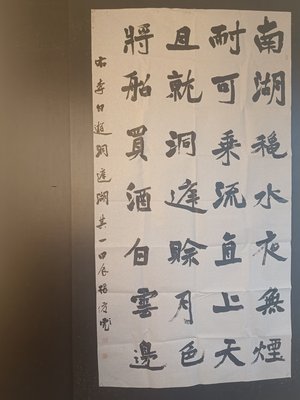 南湖穐水夜無煙
耐可乗流直上天
且就洞庭賒月色
將船買酒白雲邊
右李白遊洞庭湖其一甲辰楊